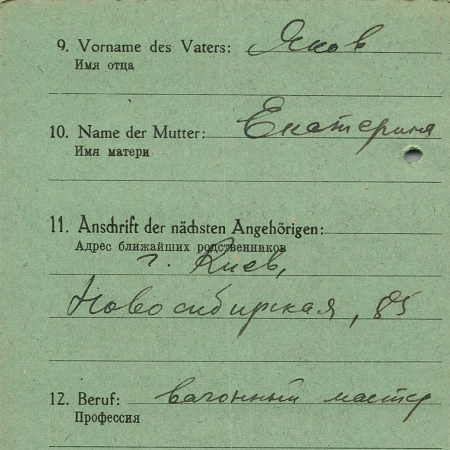 9. Vorname des Vaters: Яков
Имя отца
10. Name der Mutter: Екатерина
Имя матери
11. Anschrift der nächsten Angehörigen:
Адрес ближайших родственников
г. Киев,
Новосибирская, 85
12. Beruf: вагонный мастер
Профессия